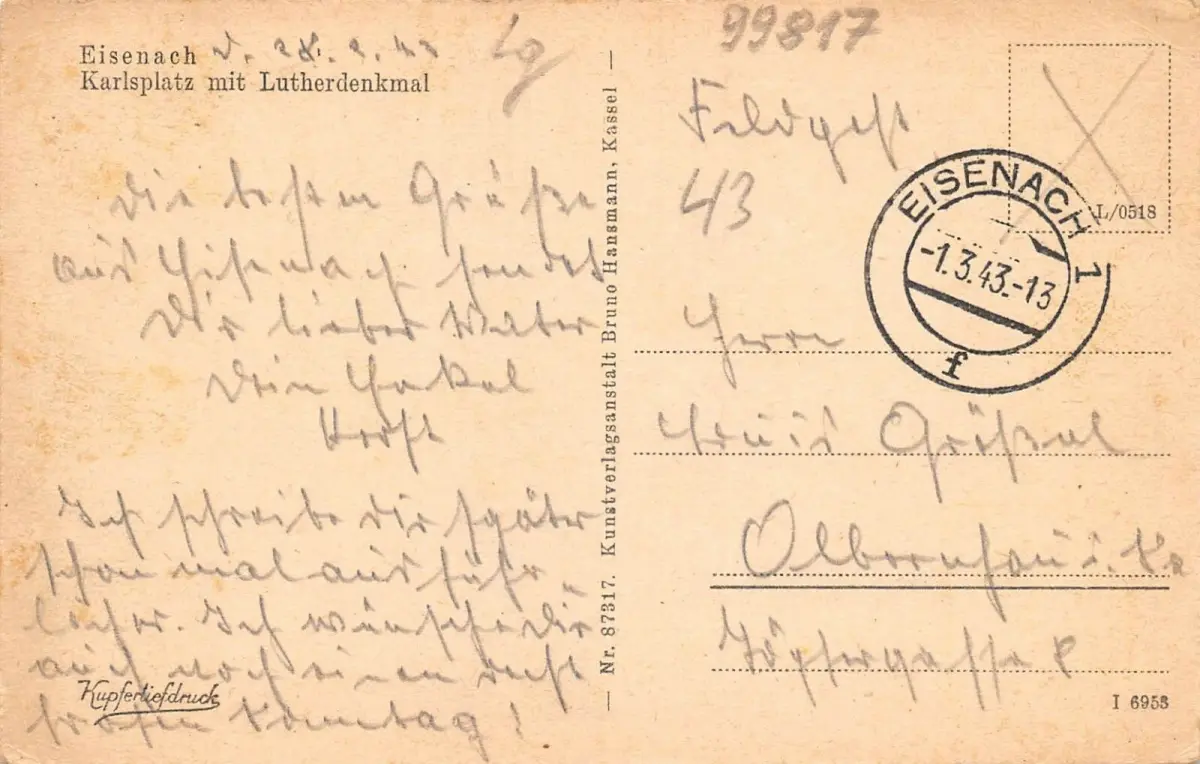 Eisenach d. 28. 2. 43
Karlsplatz mit Lutherdenkmal
Die besten Grüße
aus Eisenach sendet
Dir lieber
Dein
Horst
Ich schreibe Dir später
schon mal ausführ-
licher. Ich wünsche Dir
auch noch einen recht
frohen Sonntag!
Kupfertiefdruck
Nr. 87317. Kunstverlagsanstalt Bruno Hansmann, Kassel
99817
Feldpost
43
L/0518
EISENACH 1
-1.3.43.-13
f
Herrn
Olbernhau i.
Töpfergasse
I 6958